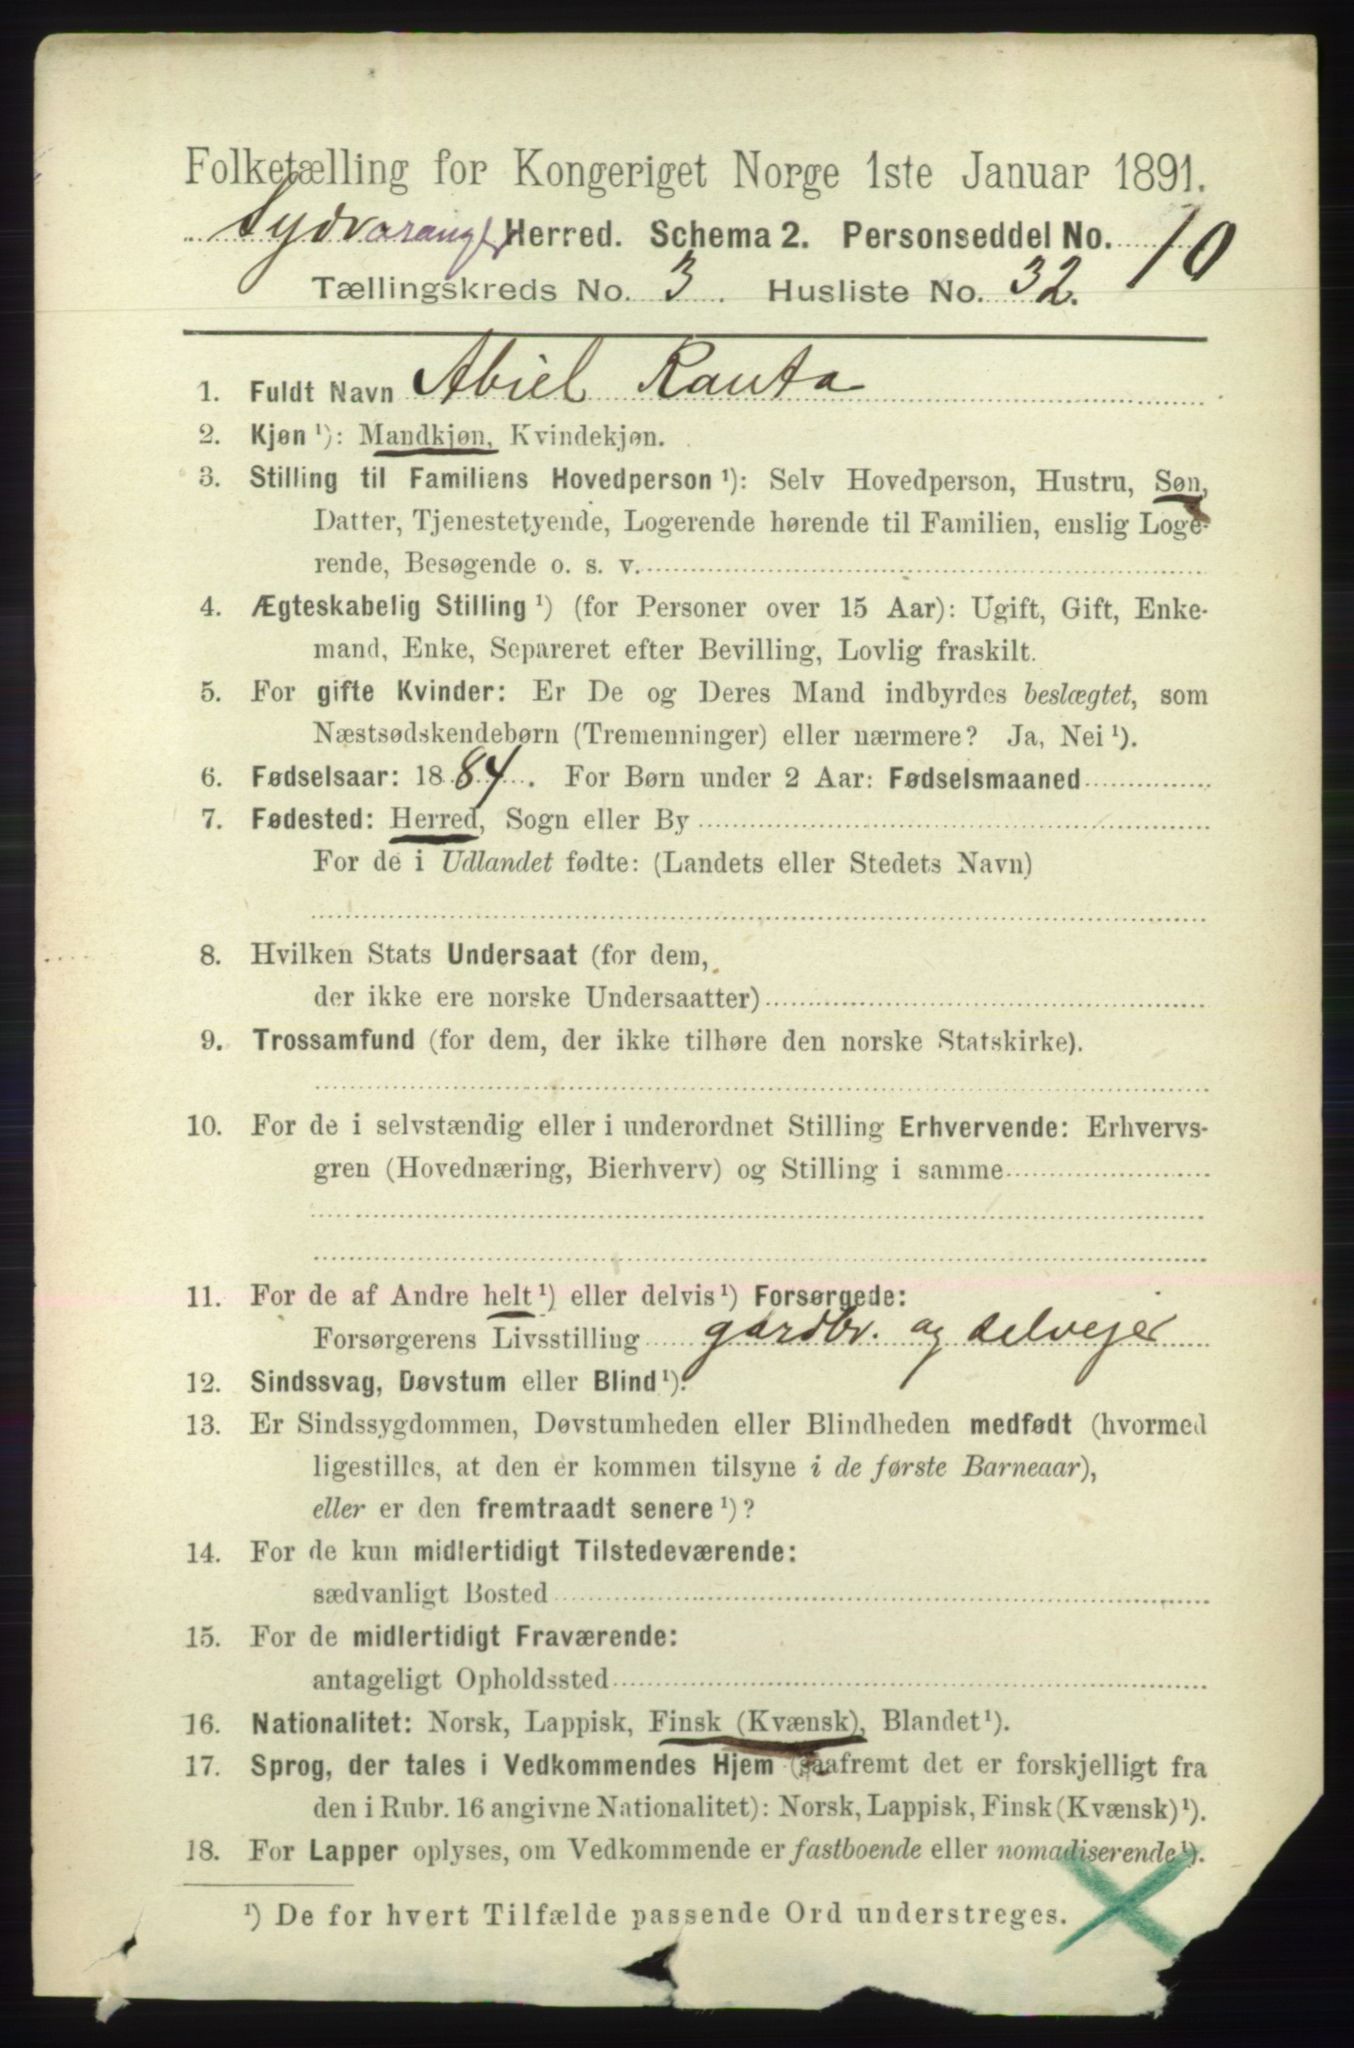 Folketælling for Kongeriget Norge 1ste Januar 1891.
Sydvaranger Herred. Schema 2. Personseddel No. 10
Tællingskreds No. 3. Husliste No. 32.
1. Fuldt Navn Abiel Rauta
2. Kjøn ¹): Mandkjøn, Kvindekjøn.
3. Stilling til Familiens Hovedperson ¹): Selv Hovedperson, Hustru, Søn,
Datter, Tjenestetyende, Logerende hørende til Familien, enslig Loge-
rende, Besøgende o. s. v.
4. Ægteskabelig Stilling ¹) (for Personer over 15 Aar): Ugift, Gift, Enke-
mand, Enke, Separeret efter Bevilling, Lovlig fraskilt.
5. For gifte Kvinder: Er De og Deres Mand indbyrdes beslægtet, som
Næstsødskendebørn (Tremenninger) eller nærmere? Ja, Nei ¹).
6. Fødselsaar: 1884. For Børn under 2 Aar: Fødselsmaaned
7. Fødested: Herred, Sogn eller By
For de i Udlandet fødte: (Landets eller Stedets Navn)
8. Hvilken Stats Undersaat (for dem,
der ikke ere norske Undersaatter)
9. Trossamfund (for dem, der ikke tilhøre den norske Statskirke).
10. For de i selvstændig eller i underordnet Stilling Erhvervende: Erhvervs-
gren (Hovednæring, Bierhverv) og Stilling i samme
11. For de af Andre helt ¹) eller delvis ¹) Forsørgede:
Forsørgerens Livsstilling gardbr. og selvejer
12. Sindssvag, Døvstum eller Blind ¹).
13. Er Sindssygdommen, Døvstumheden eller Blindheden medfødt (hvormed
ligestilles, at den er kommen tilsyne i de første Barneaar),
eller er den fremtraadt senere ¹)?
14. For de kun midlertidigt Tilstedeværende:
sædvanligt Bosted
15. For de midlertidigt Fraværende:
antageligt Opholdssted
16. Nationalitet: Norsk, Lappisk, Finsk (Kvænsk), Blandet ¹).
17. Sprog, der tales i Vedkommendes Hjem (saafremt det er forskjelligt fra
den i Rubr. 16 angivne Nationalitet): Norsk, Lappisk, Finsk (Kvænsk) ¹).
18. For Lapper oplyses, om Vedkommende er fastboende eller nomadiserende ¹).
¹) De for hvert Tilfælde passende Ord understreges.